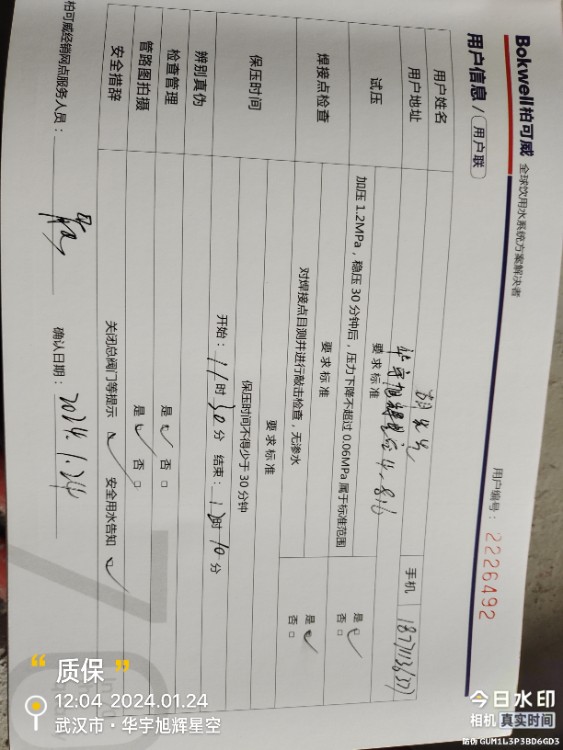 Bokwell柏可威 全球饮用水系统方案解决者
用户信息 / 用户联
用户编号： 2226492
用户姓名
用户地址 华宇旭辉星空 4-816 手机
试压
要求标准
加压 1.2MPa，稳压 30 分钟后，压力下降不超过 0.06MPa 属于标准范围
是 ✓
否 □
焊接点检查
要求标准
对焊接点目测并进行敲击检查，无渗水
是 ✓
否 □
保压时间
要求标准
保压时间不得少于 30 分钟
开始：11时30分 结束：12时10分
辨别真伪 是 ✓ 否 □
检查管理
管路图拍摄 是 ✓ 否 □
安全措辞 关闭总阀门等提示 ✓ 安全用水告知 ✓
柏可威经销网点服务人员：
确认日期： 2024.1.24
“ 质保 ”
12:04 2024.01.24
武汉市·华宇旭辉星空
今日水印
相机 真实时间
防伪 GUM1L3P3BD6GD3